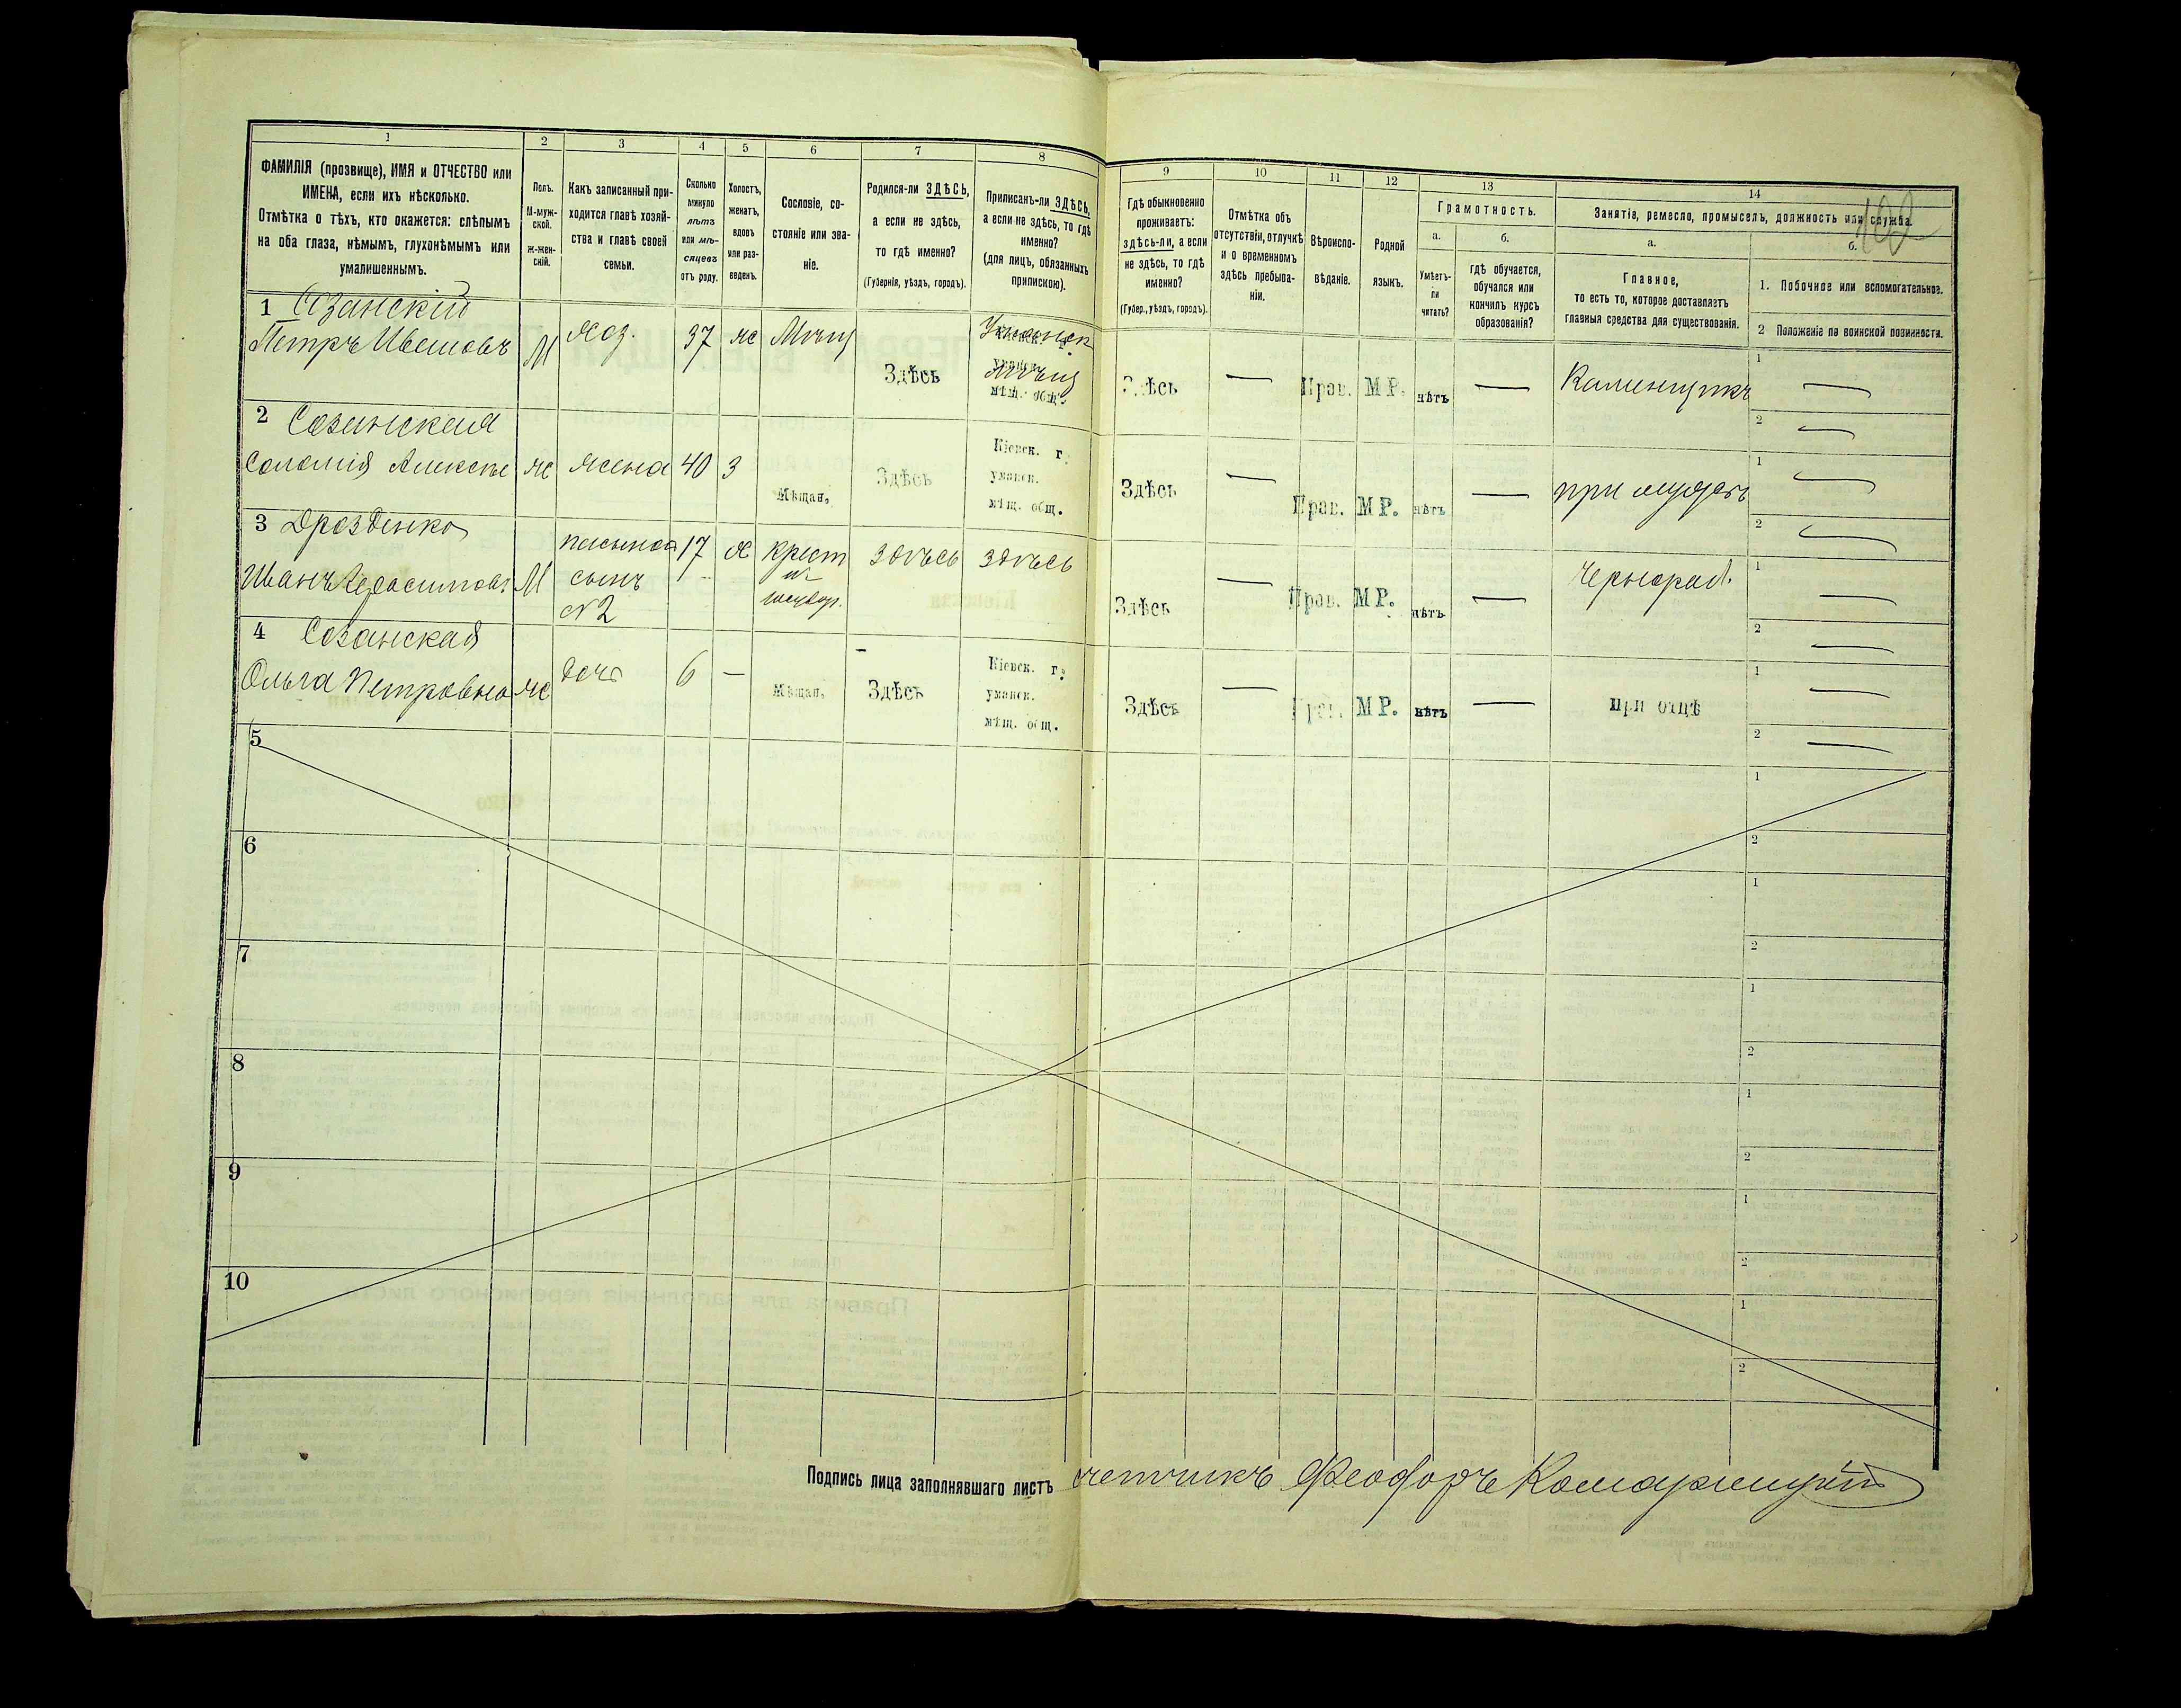 1 2 3 4 5 6 7 8
ФАМИЛІЯ (прозвище), ИМЯ и ОТЧЕСТВО или
ИМЕНА, если ихъ нѣсколько.
Отмѣтка о тѣхъ, кто окажется: слѣпымъ
на оба глаза, нѣмымъ, глухонѣмымъ или
умалишеннымъ.
Полъ.
М-муж-
ской.
ж-жен-
скій.
Какъ записанный при-
ходится главѣ хозяй-
ства и главѣ своей
семьи.
Сколько
минуло
лѣтъ
или мѣ-
сяцевъ
отъ роду.
Холостъ,
женатъ,
вдовъ
или раз-
веденъ.
Сословіе, со-
стояніе или зва-
ніе.
Родился-ли ЗДѢСЬ,
а если не здѣсь,
то гдѣ именно?
(Губернія, уѣздъ, городъ).
Приписанъ-ли ЗДѢСЬ,
а если не здѣсь, то гдѣ
именно?
(для лицъ, обязанныхъ
припискою).
9 10 11 12 13 14
Гдѣ обыкновенно
проживаетъ:
здѣсь-ли, а если
не здѣсь, то гдѣ
именно?
(Губер., уѣздъ, городъ).
Отмѣтка объ
отсутствіи, отлучкѣ
и о временномъ
здѣсь пребыва-
ніи.
Вѣроиспо-
вѣданіе.
Родной
языкъ.
Грамотность.
а.
Умѣетъ-
ли
читать?
б.
гдѣ обучается,
обучался или
кончилъ курсъ
образованія?
Занятіе, ремесло, промыселъ, должность или служба.
а.
Главное,
то есть то, которое доставляетъ
главныя средства для существованія.
б.
1. Побочное или вспомогательное.
2 Положеніе по воинской повинности.
1 Созанскій
Петръ Ивановъ М Хоз. 37 ж Мѣщ Здѣсь
Уманск
мѣщ. общ.
Здѣсь — Прав. МР. нѣтъ — Каменщикъ 1 —
2 —
2 Созанская
Соломія Алексѣе ж жена 40 З Мѣщан. Здѣсь
Кіевск. г.
уманск.
мѣщ. общ.
Здѣсь — Прав. МР. нѣтъ — при мужѣ 1 —
2 —
3 Дрозденко
Иванъ Герасимовъ М
пасынокъ
сынъ
№2
17 х Крест
здѣсь здѣсь
Здѣсь — Прав. МР. нѣтъ — Чернораб. 1 —
2 —
4 Созанская
Ольга Петровна ж дочь 6 — Мѣщан. Здѣсь
Кіевск. г.
уманск.
мѣщ. общ.
Здѣсь — Прав. МР. нѣтъ — при отцѣ 1 —
2 —
5 1
2
6 1
2
7 1
2
8 1
2
9 1
2
10 1
2
Подпись лица заполнявшаго листъ счетчикъ Феодоръ Комарницкій